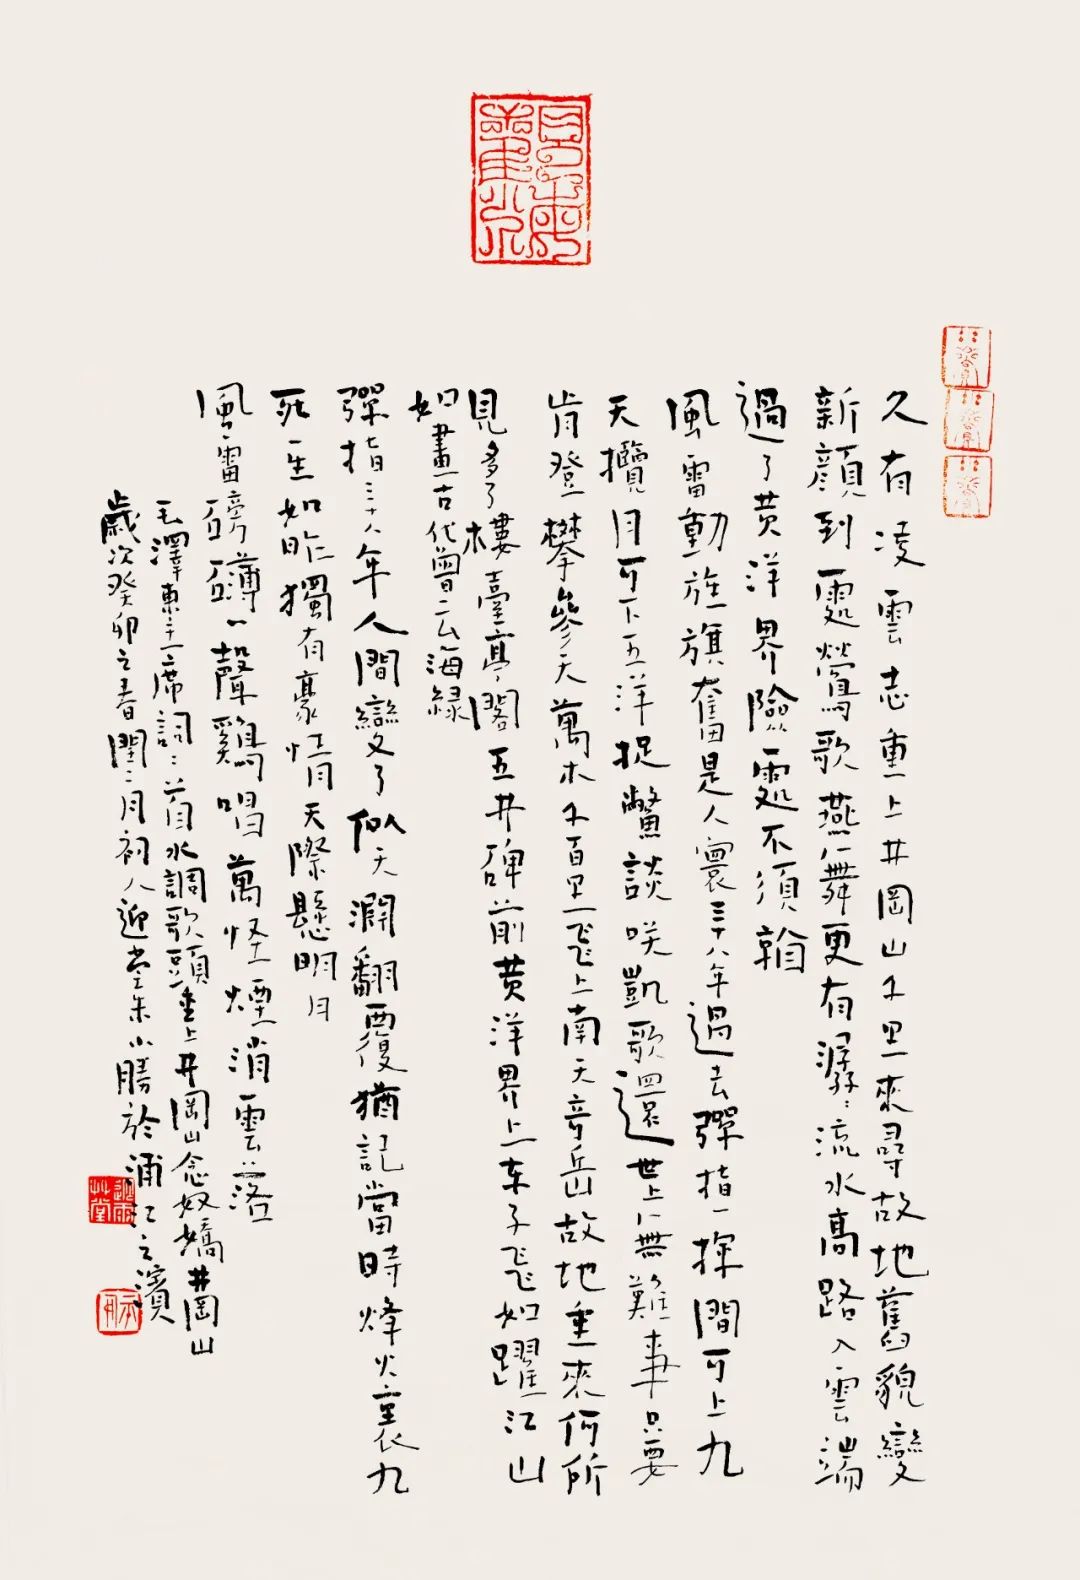 久有凌雲志重上井岡山千里來尋故地舊貌變
新顏到處鶯歌燕舞更有潺〻流水高路入雲端
過了黃洋界險處不須看
風雷動旌旗奮是人寰三十八年過去彈指一揮間可上九
天攬月可下五洋捉鱉談笑凱歌還世上無難事只要
肯登攀參天萬木千百里飛上南天奇岳故地重來何所
見多了樓臺亭閣五井碑前黃洋界上車子飛如躍江山
如畫古代曾云海綠
彈指三十八年人間變了似天淵翻覆猶記當時烽火裏九
死一生如昨獨有豪情天際懸明月
風雷磅礡一聲雞唱萬怪煙消雲落
毛澤東主席詞二首水調歌頭重上井岡山念奴嬌井岡山
歲次癸卯之春閏二月初八迎堂朱小勝於浦江之濱